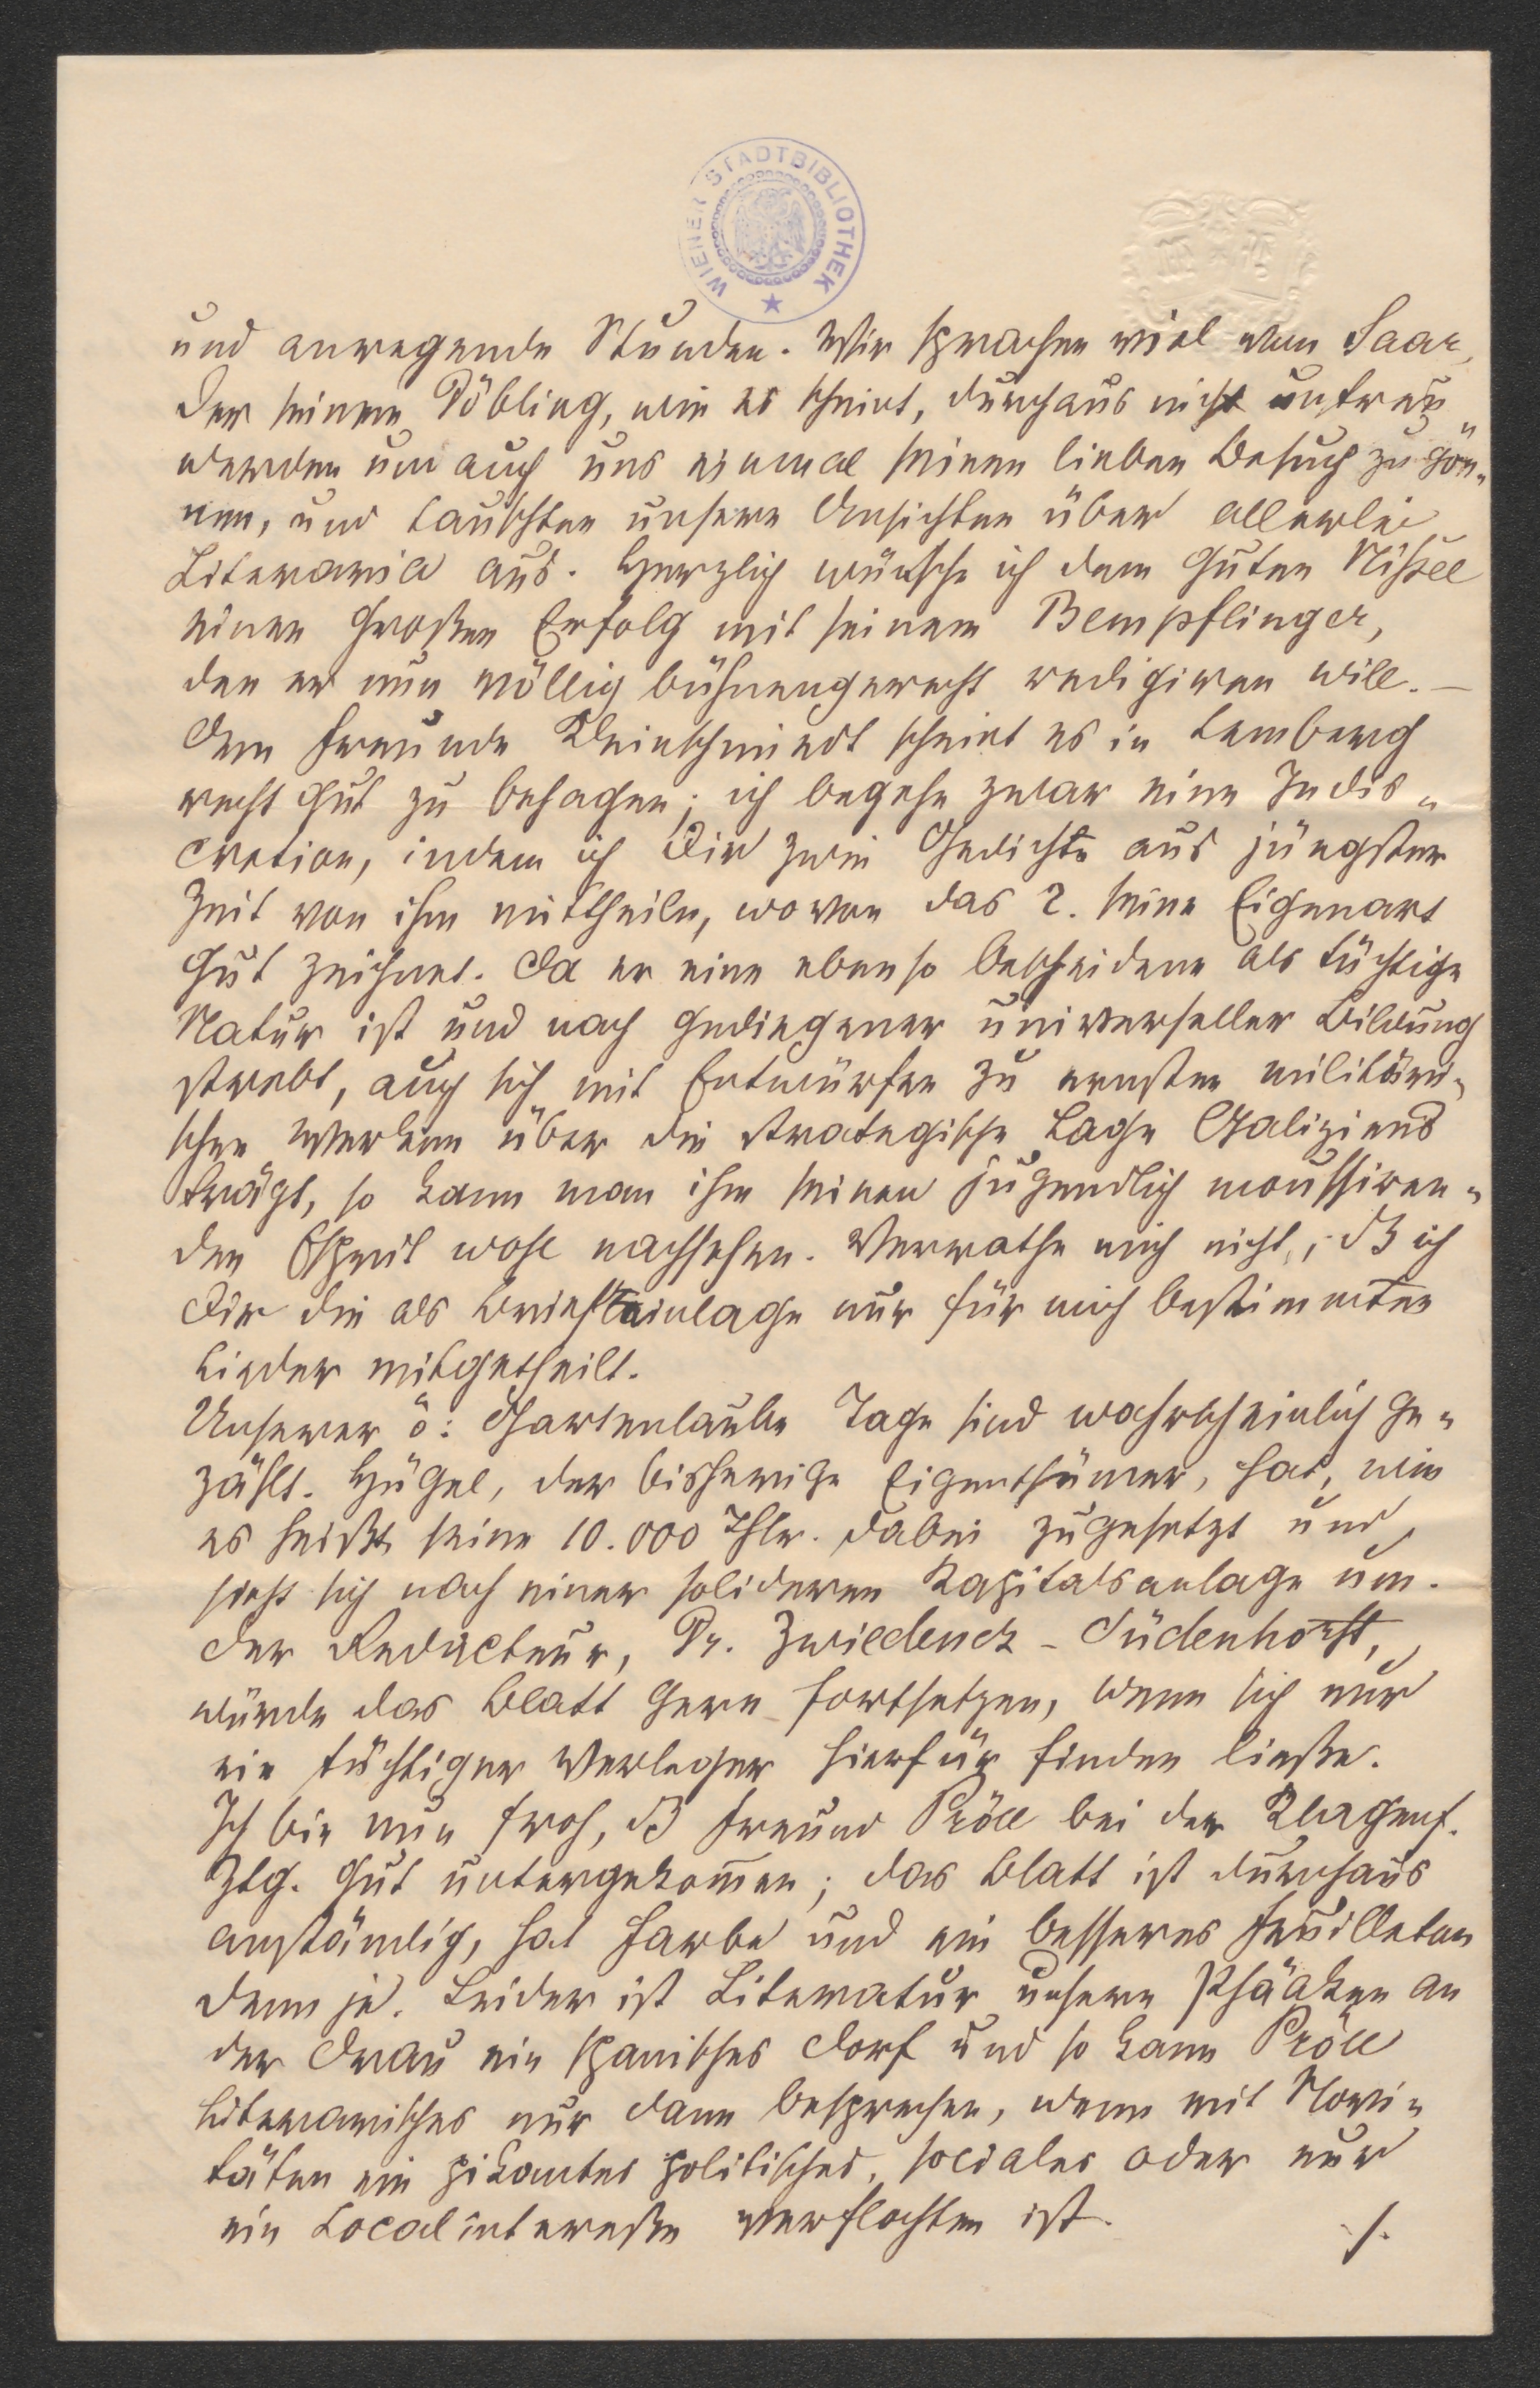 WIENER STADTBIBLIOTHEK
und anregende Stunden. Wir sprachen viel von Saar,
der seinem Döbling, wie es scheint, durchaus nicht untreu
werden um auch uns einmal seinen lieben Besuch zu gön-
nen, und tauschten unsere Ansichten über allerlei
Literaria aus. Herzlich wünsche ich dem guten Nissel
einen großen Erfolg mit seinem Bempflinger,
den er nun völlig bühnengerecht redigiren will. –
Dem Freunde Kleinschmiedt scheint es in Lemberg
recht gut zu behagen; ich begehe zwar eine Indis-
cretion, indem ich Dir zwei Gedichte aus jüngster
Zeit von ihm mittheile, wovon das 2. seine Eigenart
gut zeichnet. Da er eine ebenso bescheidene als tüchtige
Natur ist und nach gediegener universeller Bildung
strebt, auch sich mit Entwürfen zu ernsten militäri-
schen Werken über die strategische Lage Galiziens
trägt, so kann man ihm seinen jugendlich moussiren-
den Esprit wohl nachsehen. Verrathe mich nicht, dß ich
Dir die als Briefeinlage nur für mich bestimmten
Lieder mitgetheilt.
Unserer ö: Gartenlaube Tage sind wahrscheinlich ge-
zählt. Hügel, der bisherige Eigenthümer, hat, wie
es heißt, seine 10.000 Thlr. dabei zugesetzt und
sieht sich nach einer solideren Kapitalsanlage um.
Der Redacteur, Dr. Zwiedenek-Südenhorst,
würde das Blatt gern fortsetzen, wenn sich nur
ein tüchtiger Verleger hierfür finden ließe.
Ich bin nun froh, dß Freund Pröll bei der Klagenf.
Ztg. gut untergekommen; das Blatt ist durchaus
anständig, hat Farbe und ein besseres Feuilleton
denn je. Leider ist Literatur unsern Phäaken an
der Drau ein spanisches Dorf und so kann Pröll
Literarisches nur dann besprechen, wenn mit Novi-
täten ein pikantes politisches, sociales oder nur
ein Localinteresse verflochten ist.
./.